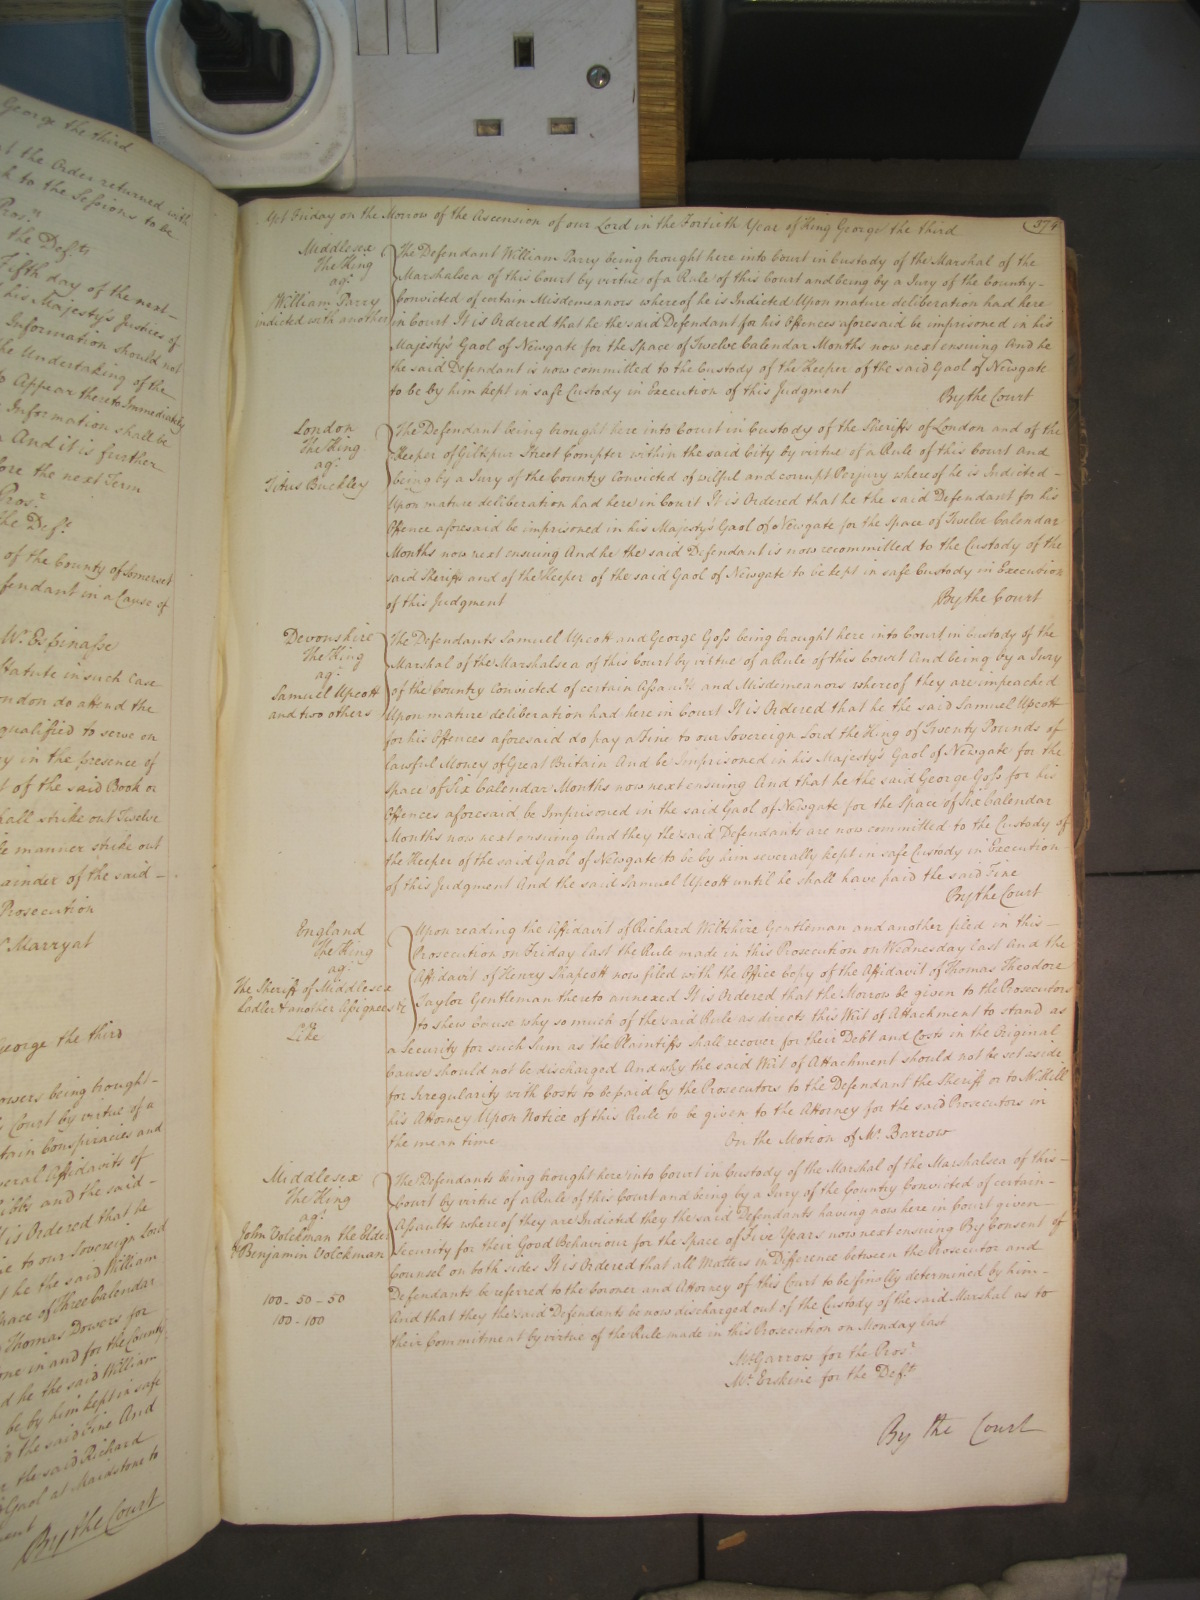 George the third
t the Order returned with
h to the Sessions to be
Pros.r
the Def.ts
Fifth day of the next
his Majesty's Justices of
Information should not
the Undertaking of the
to Appear thereto Immediately
Information shall be
And it is further
fore the next Term
Pros.r
the Def.t
of the County of Somerset
fendant in a Cause of
W. Espinasse
Statute in such Case
ondon do attend the
qualified to serve on
y in the presence of
t of the said Book or
hall strike out Twelve
ke manner strike out
ainder of the said
Prosecution
Marryat
George the third
owers being brought
Court by virtue of a
tain Conspiracies and
veral Affidavits of
and the said
is Ordered that he
e to our Sovereign Lord
t he the said William
pace of Three Calendar
Thomas Dowers for
one in and for the County
d he the said William
be by him kept in safe
d the said Fine And
the said Richard
Gaol at Maidstone to
ment
By the Court
Yet Friday on the Morrow of the Ascension of our Lord in the Fortieth Year of King George the third
Middlesex
The King
ag.t
William Parry
indicted with another
The Defendant William Parry being brought here into Court in Custody of the Marshal of the
Marshalsea of this Court by virtue of a Rule of this Court and being by a Jury of the County
Convicted of certain Misdemeanors whereof he is Indicted Upon mature deliberation had here
in Court It is Ordered that he the said Defendant for his Offences aforesaid be imprisoned in his
Majesty's Gaol of Newgate for the Space of Twelve Calendar Months now next ensuing And he
the said Defendant is now committed to the Custody of the Keeper of the said Gaol of Newgate
to be by him kept in safe Custody in Execution of this Judgment By the Court
London
The King
ag.t
Titus Buckley
The Defendant being brought here into Court in Custody of the Sheriffs of London and of the
Keeper of Giltspur Street Compter within the said City by virtue of a Rule of this Court and
being by a Jury of the Country Convicted of wilful and corrupt Perjury whereof he is Indicted
Upon mature deliberation had here in Court It is Ordered that he the said Defendant for his
Offence aforesaid be imprisoned in his Majesty's Gaol of Newgate for the Space of Twelve Calendar
Months now next ensuing And he the said Defendant is now recommitted to the Custody of the
said Sheriffs and of the Keeper of the said Gaol of Newgate to be kept in safe Custody in Execution
of this Judgment By the Court
Devonshire
The King
ag.t
Samuel Upcott
and two others
The Defendants Samuel Upcott and George Goss being brought here into Court in Custody of the
Marshal of the Marshalsea of this Court by virtue of a Rule of this Court And being by a Jury
of the Country Convicted of certain Assaults and Misdemeanors whereof they are impeached
Upon mature deliberation had here in Court It is Ordered that he the said Samuel Upcott
for his Offences aforesaid do pay a Fine to our Sovereign Lord the King of Twenty Pounds of
lawful Money of Great Britain And be Imprisoned in his Majesty's Gaol of Newgate for the
Space of Six Calendar Months now next ensuing And that he the said George Goss for his
Offences aforesaid be Imprisoned in the said Gaol of Newgate for the Space of Six Calendar
Months now next ensuing And they the said Defendants are now committed to the Custody of
the Keeper of the said Gaol of Newgate to be by him severally kept in safe Custody in Execution
of this Judgment And the said Samuel Upcott until he shall have paid the said Fine
By the Court
England
The King
ag.t
The Sheriff of Middlesex
Ladler & another Assignees &c
v.
Like
Upon reading the Affidavit of Richard Wiltshire Gentleman and another filed in this
Prosecution on Friday last the Rule made in this Prosecution on Wednesday last And the
Affidavit of Henry Shapcott now filed with the Office Copy of the Affidavit of Thomas Theodore
Taylor Gentleman thereto annexed It is Ordered that the Morrow be given to the Prosecutors
to shew Cause why so much of the said Rule as directs this Writ of Attachment to stand as
a Security for such Sum as the Plaintiffs shall recover for their Debt and Costs in the Original
Cause should not be discharged And why the said Writ of Attachment should not be set aside
for Irregularity with Costs to be paid by the Prosecutors to the Defendant the Sheriff or to Mr Hill
his Attorney Upon Notice of this Rule to be given to the Attorney for the said Prosecutors in
the mean time On the Motion of Mr. Barrow
Middlesex
The King
ag.t
John Volckman the Elder
& Benjamin Volckman
100 - 50 - 50
100 - 100
The Defendants being brought here into Court in Custody of the Marshal of the Marshalsea of this
Court by virtue of a Rule of this Court and being by a Jury of the Country Convicted of certain
Assaults whereof they are Indicted they the said Defendants having now here in Court given
Security for their Good Behaviour for the Space of Five Years now next ensuing By Consent of
Counsel on both sides It is Ordered that all Matters in Difference between the Prosecutor and
Defendants be referred to the Coroner and Attorney of this Court to be finally determined by him
And that they the said Defendants be now discharged out of the Custody of the said Marshal as to
their Commitment by virtue of the Rule made in this Prosecution on Monday last
Mr. Garrow for the Pros.r
Mr. Erskine for the Def.ts
By the Court